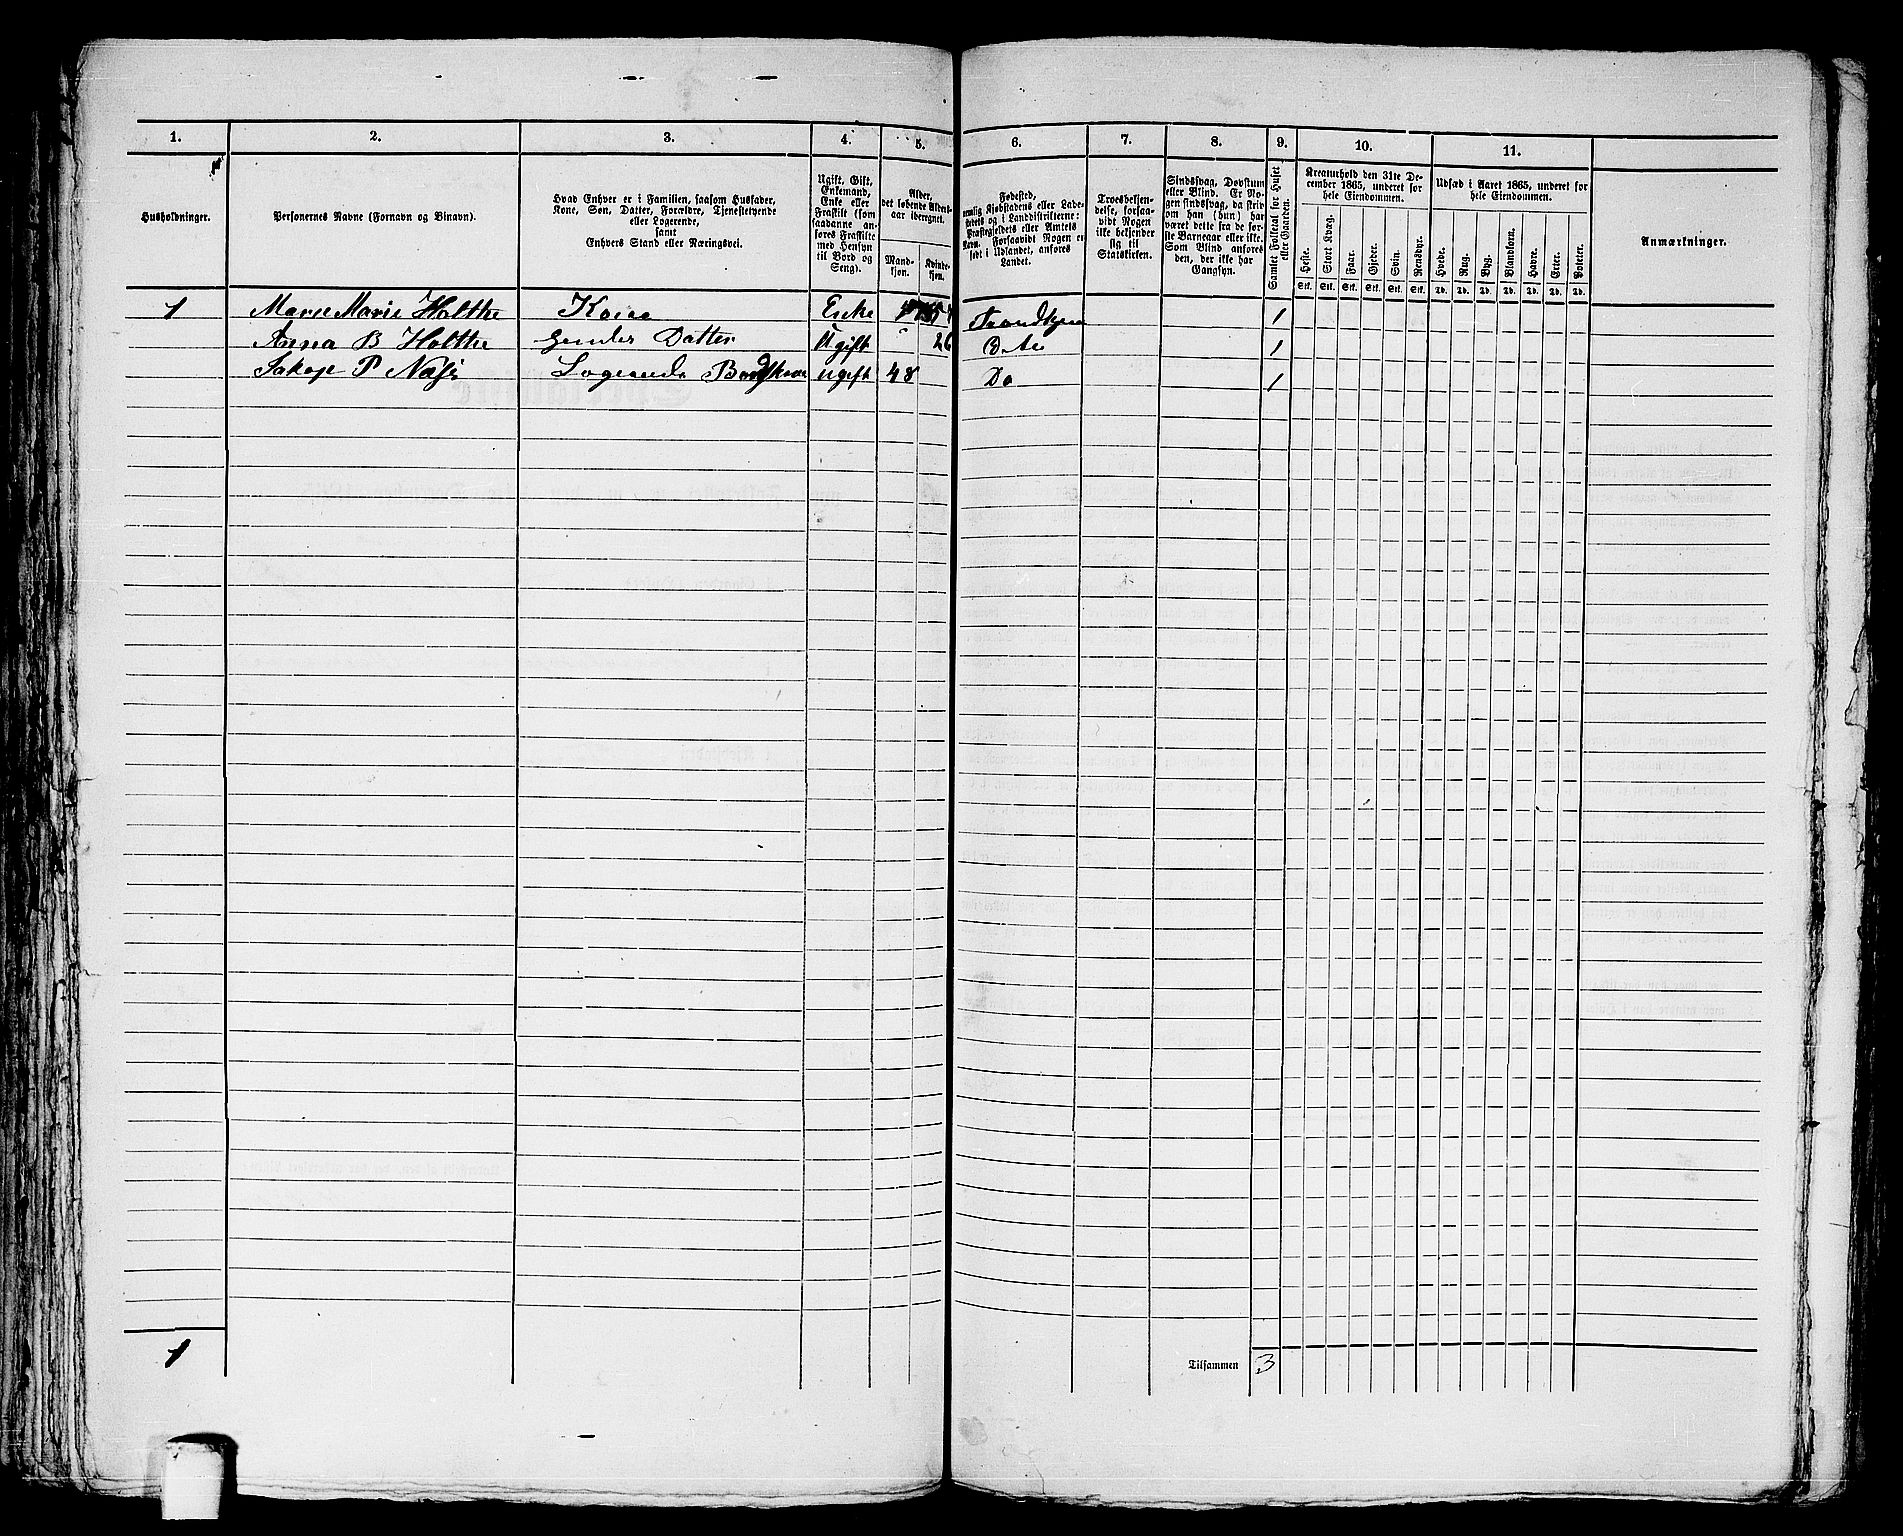 1. 2. 3. 4. 5. 6. 7. 8. 9. 10. 11.
Husholdninger.
Personernes Navne (Fornavn og Binavn).
Hvad Enhver er i Familien, saasom Husfader,
Kone, Søn, Datter, Forældre, Tjenestetyende
eller Logerende,
samt
Enhvers Stand eller Næringsvei.
Ugift, Gift,
Enkemand,
Enke eller
Fraskilt (som
saadanne an-
føres Fraskilte
med Hensyn
til Bord og
Seng).
Alder,
det løbende Alders-
aar iberegnet.
Mand-
kjøn.
Kvinde-
kjøn.
Fødested,
Kjøbstadens eller Lade-
stedets og i Landdistrikterne:
Præstegjeldets eller Amtets
Navn. Forsaavidt Nogen er
født i Udlandet, anføres
Landet.
Troesbekjen-
delse, forsaa-
vidt Nogen
ikke bekjender
sig til
Statskirken.
Sindssvag, Døvstum
eller Blind. Er No-
gen sindssvag, da skriv
om han (hun) har
været dette fra de før-
ste Barneaar eller ikke.
Som Blind anføres
den, der ikke har
Gangsyn.
Samlet Folketal for Huset
eller Gaarden.
Kreaturhold den 31te De-
cember 1865, underet for
hele Eiendommen.
Heste. Stort Kvæg. Faar. Gjeder. Svin. Rensdyr.
Stk. Stk. Stk. Stk. Stk. Stk.
Udsæd i Aaret 1865, underet for
hele Eiendommen.
Hvede. Rug. Byg. Blandkorn. Havre. Erter. Poteter.
Td. Td. Td. Td. Td. Td. Td.
Anmærkninger.
1 Maria Holtke Kone Enke 1
Anna B Holtke Datter Ugift 26 1
P Logerende ugift 48 Do 1
1
Tilsammen 3